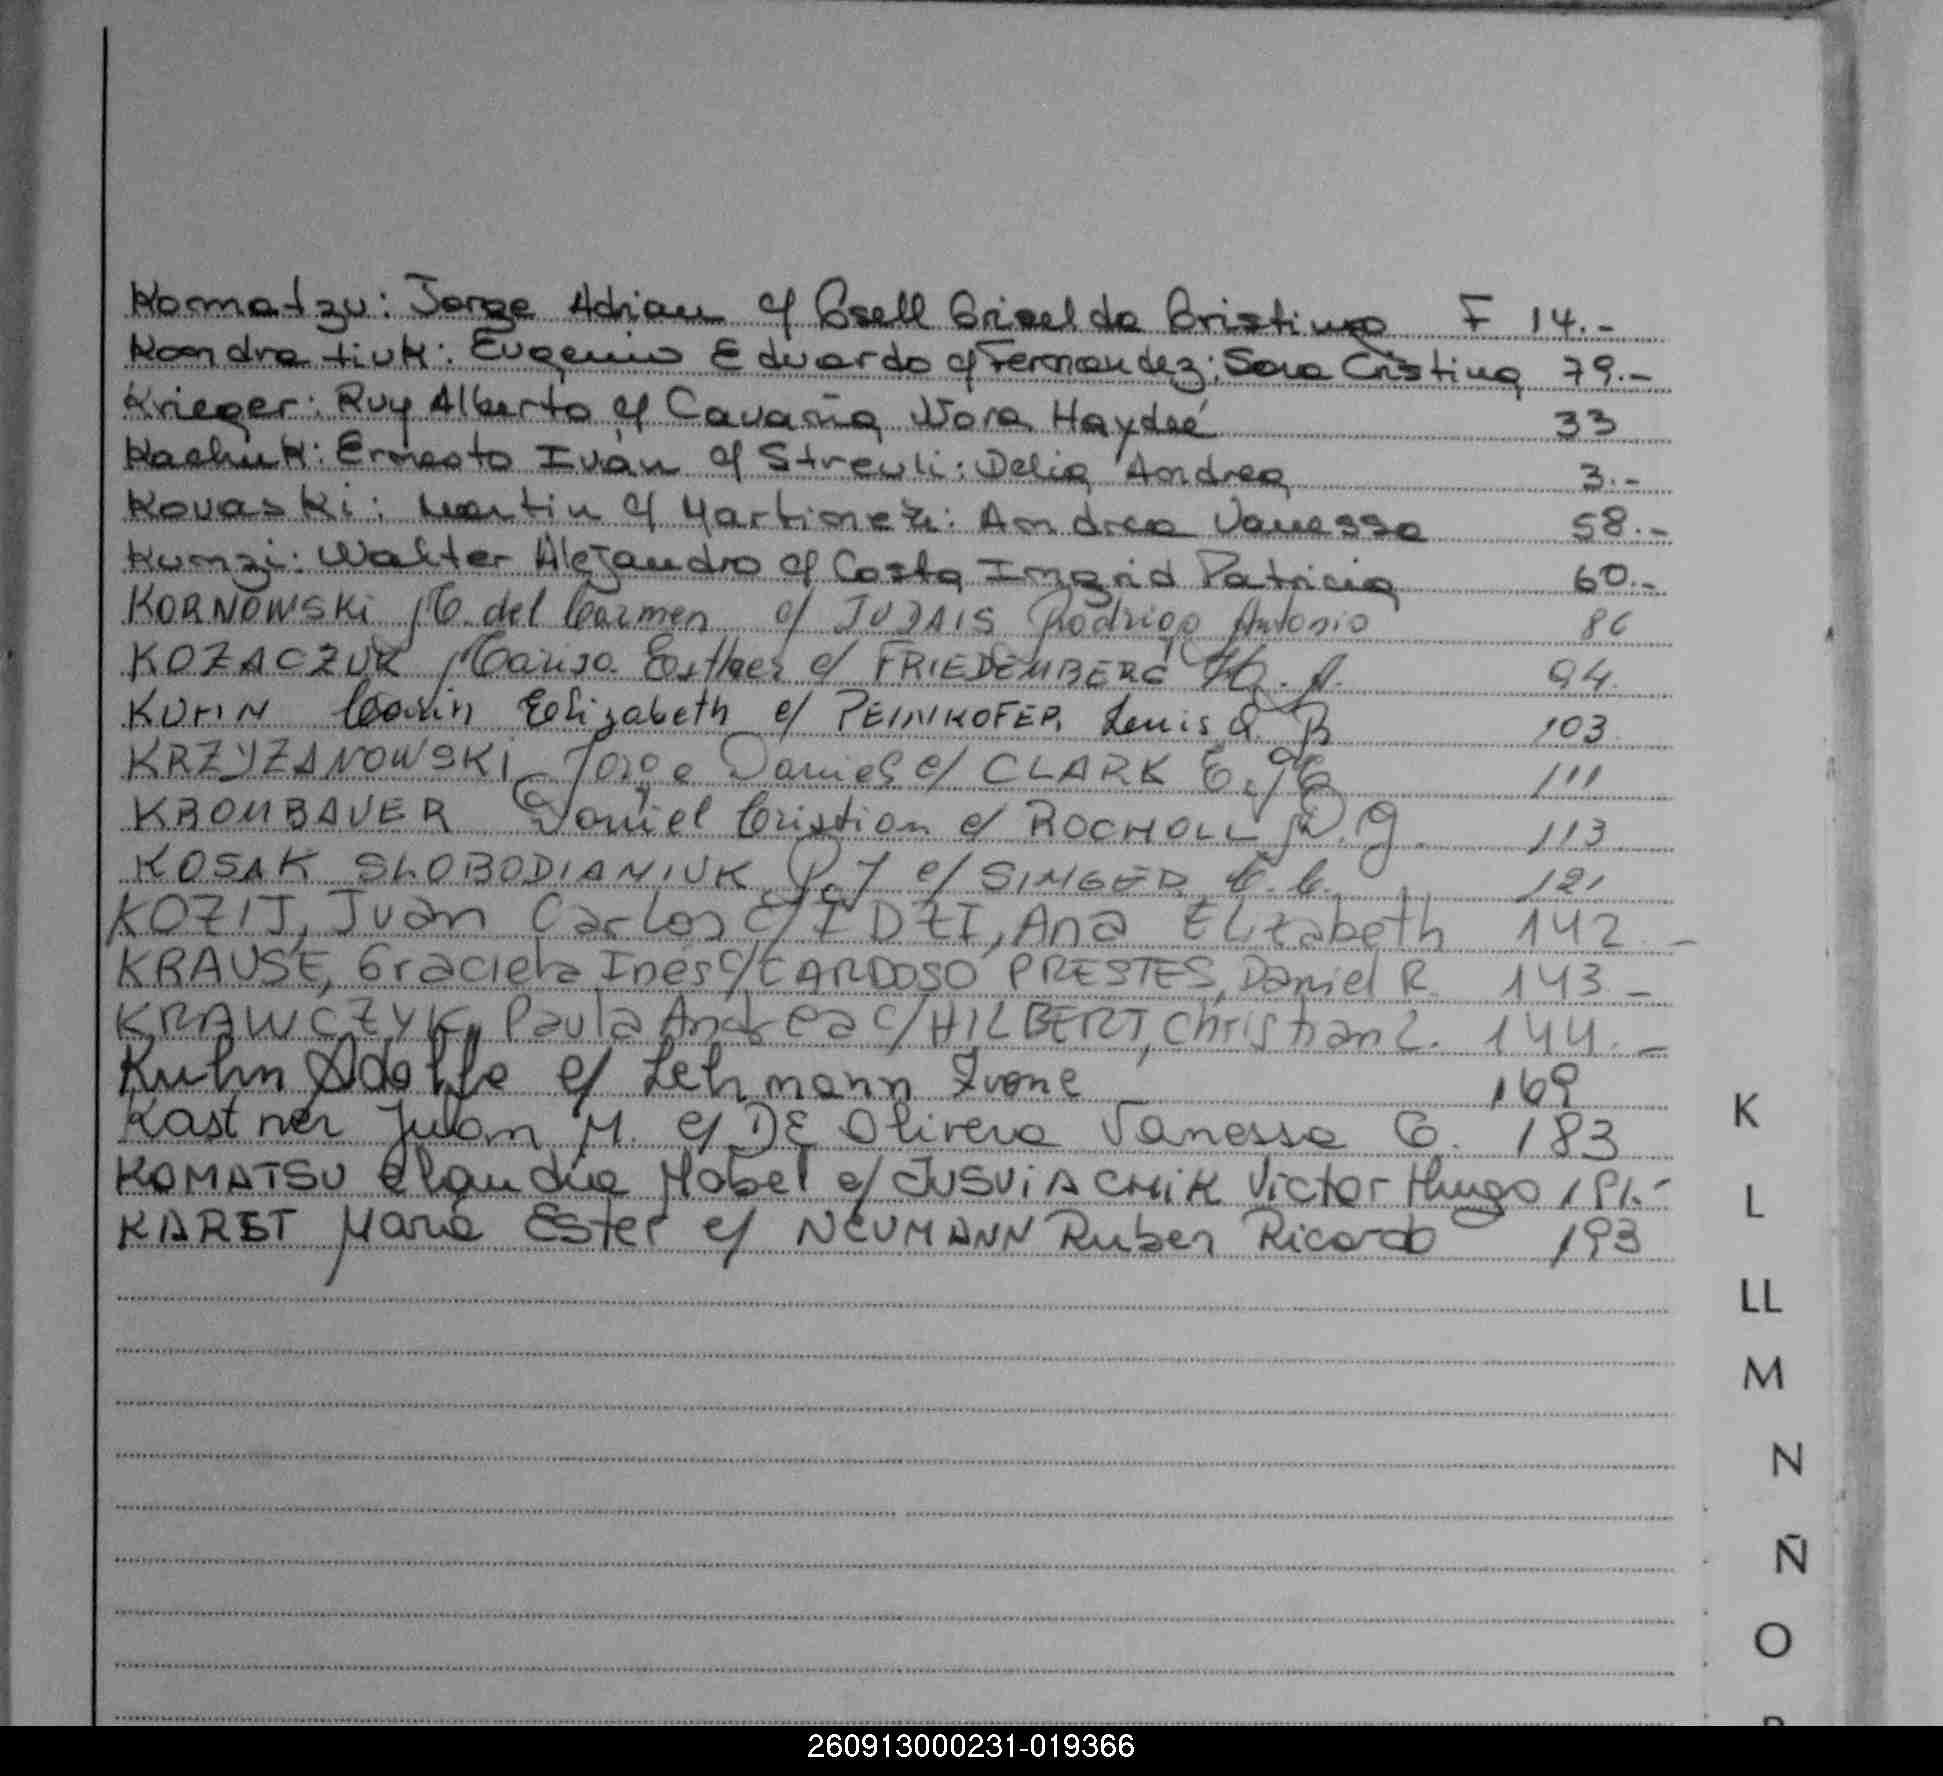 Komatzu: Jorge Adrian c/ Gsell Griselda Cristina F 14.-
Kondratiuk: Eugenio Eduardo c/ Fernandez: Sara Cristina 79.-
Krieger: Ruy Alberto c/ Cavaña Nora Haydeé 33
Kachuk: Ernesto Iván c/ Streuli: Delia Andrea 3.-
Kovaski: Martin c/ Martinez: Andrea Vanessa 58.-
Kunzi: Walter Alejandro c/ Costa Ingrid Patricia 60.-
KORNOWSKi M. del Carmen c/ JUDAIS Rodrigo Antonio 86
KOZACZUK Marisa Esther c/ FRIEDEMBERG H. A. 94
KUHN Carin Elizabeth c/ PEINHOFER Luis B 103
KRZYZANOWSKI Jorge Daniel c/ CLARK E. M 111
KROMBAUER Daniel Cristian c/ ROCHOLL g. 113
KOSAK SLOBODIANIUK P. J c/ SINGER C. C. 121
KOZIJ, Juan Carlos C/ IDZI, Ana Elizabeth 142.-
KRAUSE, Graciela Inés c/ CARDOSO PRESTES, Daniel R. 143.-
KRAWCZYK, Paula Andrea c/ HILBERT, Christian L. 144.-
Kuhn Adolfo c/ Lehmann Ivone 169
Kastner Julian M. c/ DE Olivera Vanessa C. 183
KOMATSU Claudia Mabel c/ JUSViACHiK Victor Hugo 191.-
KARBT Maria Ester c/ NEUMANN Ruben Ricardo 193
K
L
LL
M
N
Ñ
O
260913000231-019366